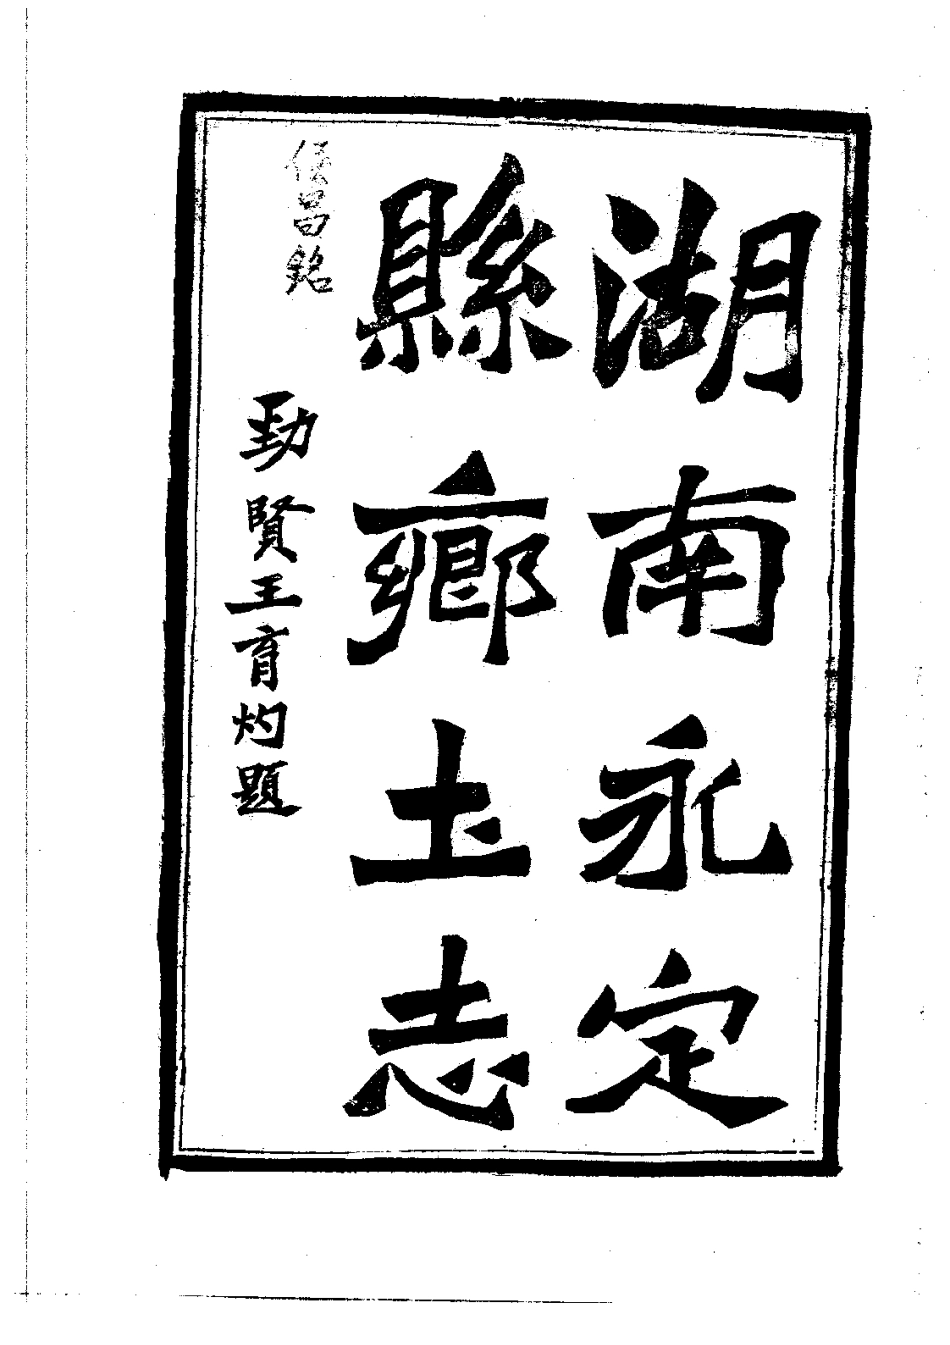 湖南永定
縣鄉土志
侯昌銘
勁賢王育灼題